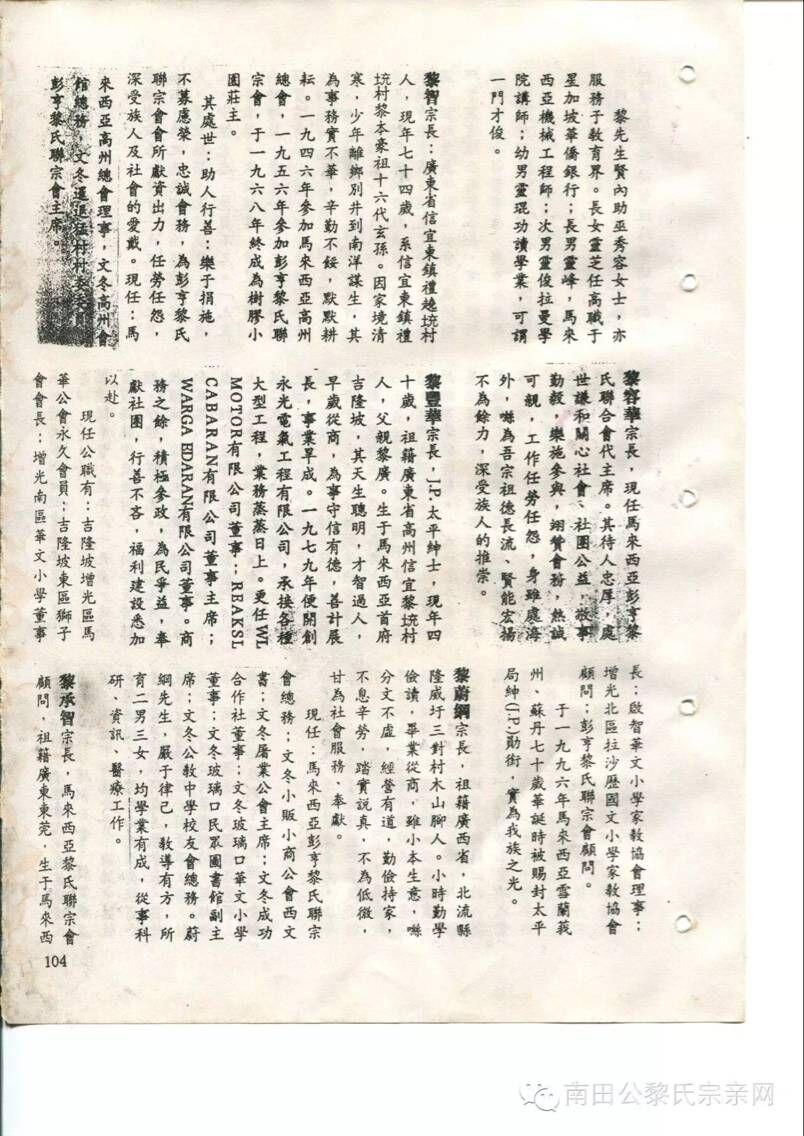 黎先生賢內助巫秀容女士，亦
服務于教育界。長女靈芝任高職于
星加坡華僑銀行；長男靈峰，馬來
西亞機械工程師；次男靈俊拉曼學
院講師；幼男靈琨功讀學業，可謂
一門才俊。
黎智宗長：廣東省信宜東鎮禮垌村
人，現年七十四歲，系信宜東鎮禮
垌村黎本豪祖十六代玄孫。因家境清
寒，少年離鄉別井到南洋謀生，其
為事務實不華，辛勤不餒，默默耕
耘。一九四六年參加馬來西亞高州
總會，一九五六年參加彭亨黎氏聯
宗會，于一九六八年終成為樹膠小
園莊主。
其處世：助人行善：樂于捐施，
不募虛榮，忠誠會務，為彭亨黎氏
聯宗會會所獻資出力，任勞任怨，
深受族人及社會的愛戴。現任：馬
來西亞高州總會理事，文冬高州會
館總務，文冬暹逛猛村村委委員，
彭亨黎氏聯宗會主席。
黎容華宗長，現任馬來西亞彭亨黎
氏聯合會代主席。其待人忠厚，處
世謙和關心社會、社團公益，敬事
勤毅，樂施參與，翊贊會務，熱誠
可親，工作任勞任怨，身雖處海
外，咻為吾宗祖德長流、賢能宏揚
不為餘力，深受族人的推崇。
黎豐華宗長，J.P.太平紳士，現年四
十歲，祖籍廣東省高州信宜黎垌村
人，父親黎廣。生于馬來西亞首府
吉隆坡，其天生聰明，才智過人，
早歲從商，為事守信有德，善計展
長，事業早成。一九七九年便開創
永光電氣工程有限公司，承接各種
大型工程，業務蒸蒸日上。更任WL
MOTOR有限公司董事；REAKSL
CABARAN有限公司董事主席；
WARGA EDARAN有限公司董事。商
務之餘，積極參政，為民爭益，奉
獻社團，行善不吝，福利建設悉加
以赴。
現任公職有：吉隆坡增光區馬
華公會永久會員；吉隆坡東區獅子
會會長；增光南區華文小學董事
長；啟智華文小學家教協會理事；
增光北區拉沙歷國文小學家教協會
顧問；彭亨黎氏聯宗會顧問。
于一九九六年馬來西亞雪蘭莪
州、蘇丹七十歲華誕時被賜封太平
局紳(J.P.)勛銜，實為我族之光。
黎蔚綱宗長，祖籍廣西省，北流縣
隆威圩三對村木山腳人。小時勤學
儉讀，畢業從商，雖小本生意，咻
分文不虛，經營有道，勤儉持家，
不息辛勞，踏實說真，不為低微，
甘為社會服務、奉獻。
現任：馬來西亞彭亨黎氏聯宗
會總務；文冬小販小商公會西文
書；文冬屠業公會主席；文冬成功
合作社董事；文冬玻璃口華文小學
董事；文冬玻璃口民眾圖書館副主
席；文冬公教中學校友會總務。蔚
綱先生，嚴于律己，教導有方，所
育二男三女，均學業有成，從事科
研、資訊、醫療工作。
黎承智宗長，馬來西亞黎氏聯宗會
顧問，祖籍廣東東莞，生于馬來西
104
南田公黎氏宗亲网